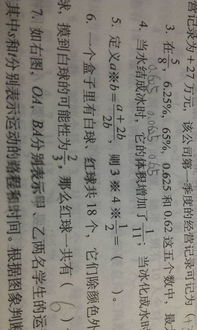 营记录为+27万元, 该公司第一季度的经营记录可记为(
3. 在5/8, 6.25%, 65%, 0.625和0.62这五个数中, 最
0.625 0.65
4. 当水结成冰时, 它的体积增加了1/11; 当冰化成水时
5. 定义a※b=(a+2b)/2b, 则3※4※1/2=( )。
6. 一个盒子里有白球、红球共18个, 它们除颜色外
球, 摸到白球的可能性为2/3, 那么红球一共有( 6 )
7. 如右图, OA、BA分别表示甲、乙两名学生的运
其中s和t分别表示运动的路程和时间。根据图象判断